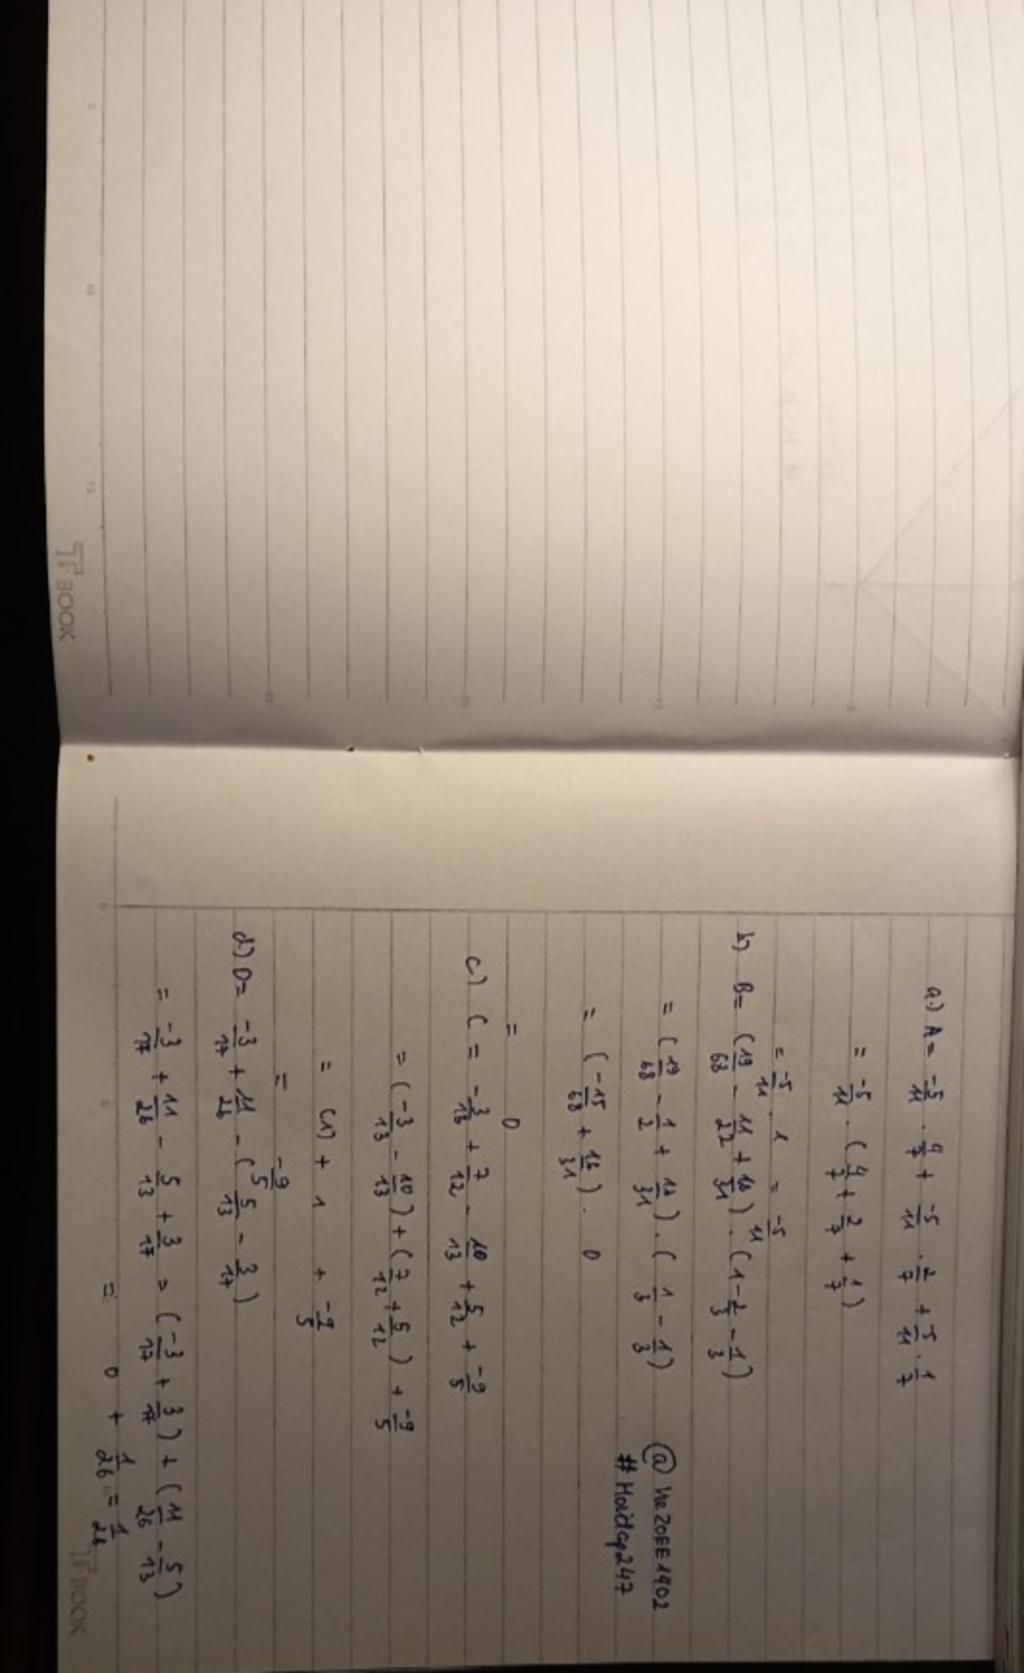 a.) A = -5/11 . 4/7 + -5/11 . 2/7 + -5/11 . 1/7
= -5/11 . (4/7 + 2/7 + 1/7)
= -5/11 . 1 = -5/11
b) B = (19/68 - 11/22 + 16/31) . (1 - 2/3 - 1/3)
= (19/68 - 1/2 + 12/31) . (1/3 - 1/3)
= (-15/68 + 16/31) . 0
= 0
c) C = -3/13 + 7/12 - 10/13 + 5/12 + -9/5
= (-3/13 - 10/13) + (7/12 + 5/12) + -9/5
= (1) + 1 + -9/5
= -9/5
d) D = -3/17 + 11/26 - (5/13 - 3/17)
= -3/17 + 11/26 - 5/13 + 3/17 = (-3/17 + 3/17) + (11/26 - 5/13)
= 0 + 1/26 = 1/26
#Hoidap247
TF BOOK
TF BOOK